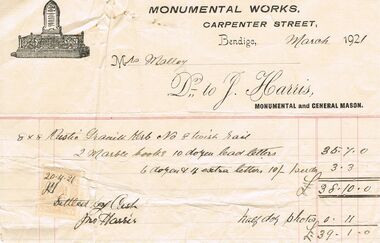 MONUMENTAL WORKS,
CARPENTER STREET,
Bendigo, March 1921
Mrs Malloy
Dr to J. Harris,
MONUMENTAL and GENERAL MASON.
8 x 8 Rustic Granite Kerb No 8 rail 35-7.0
2 Marble books 10 dozen lead letters
6 dozen & 4 extra letters 10/ 3-3
£ 38-10.0
20-4-21
Settled by Cash
Jno Harris
half doz photos 0-11
£ 39-1.0